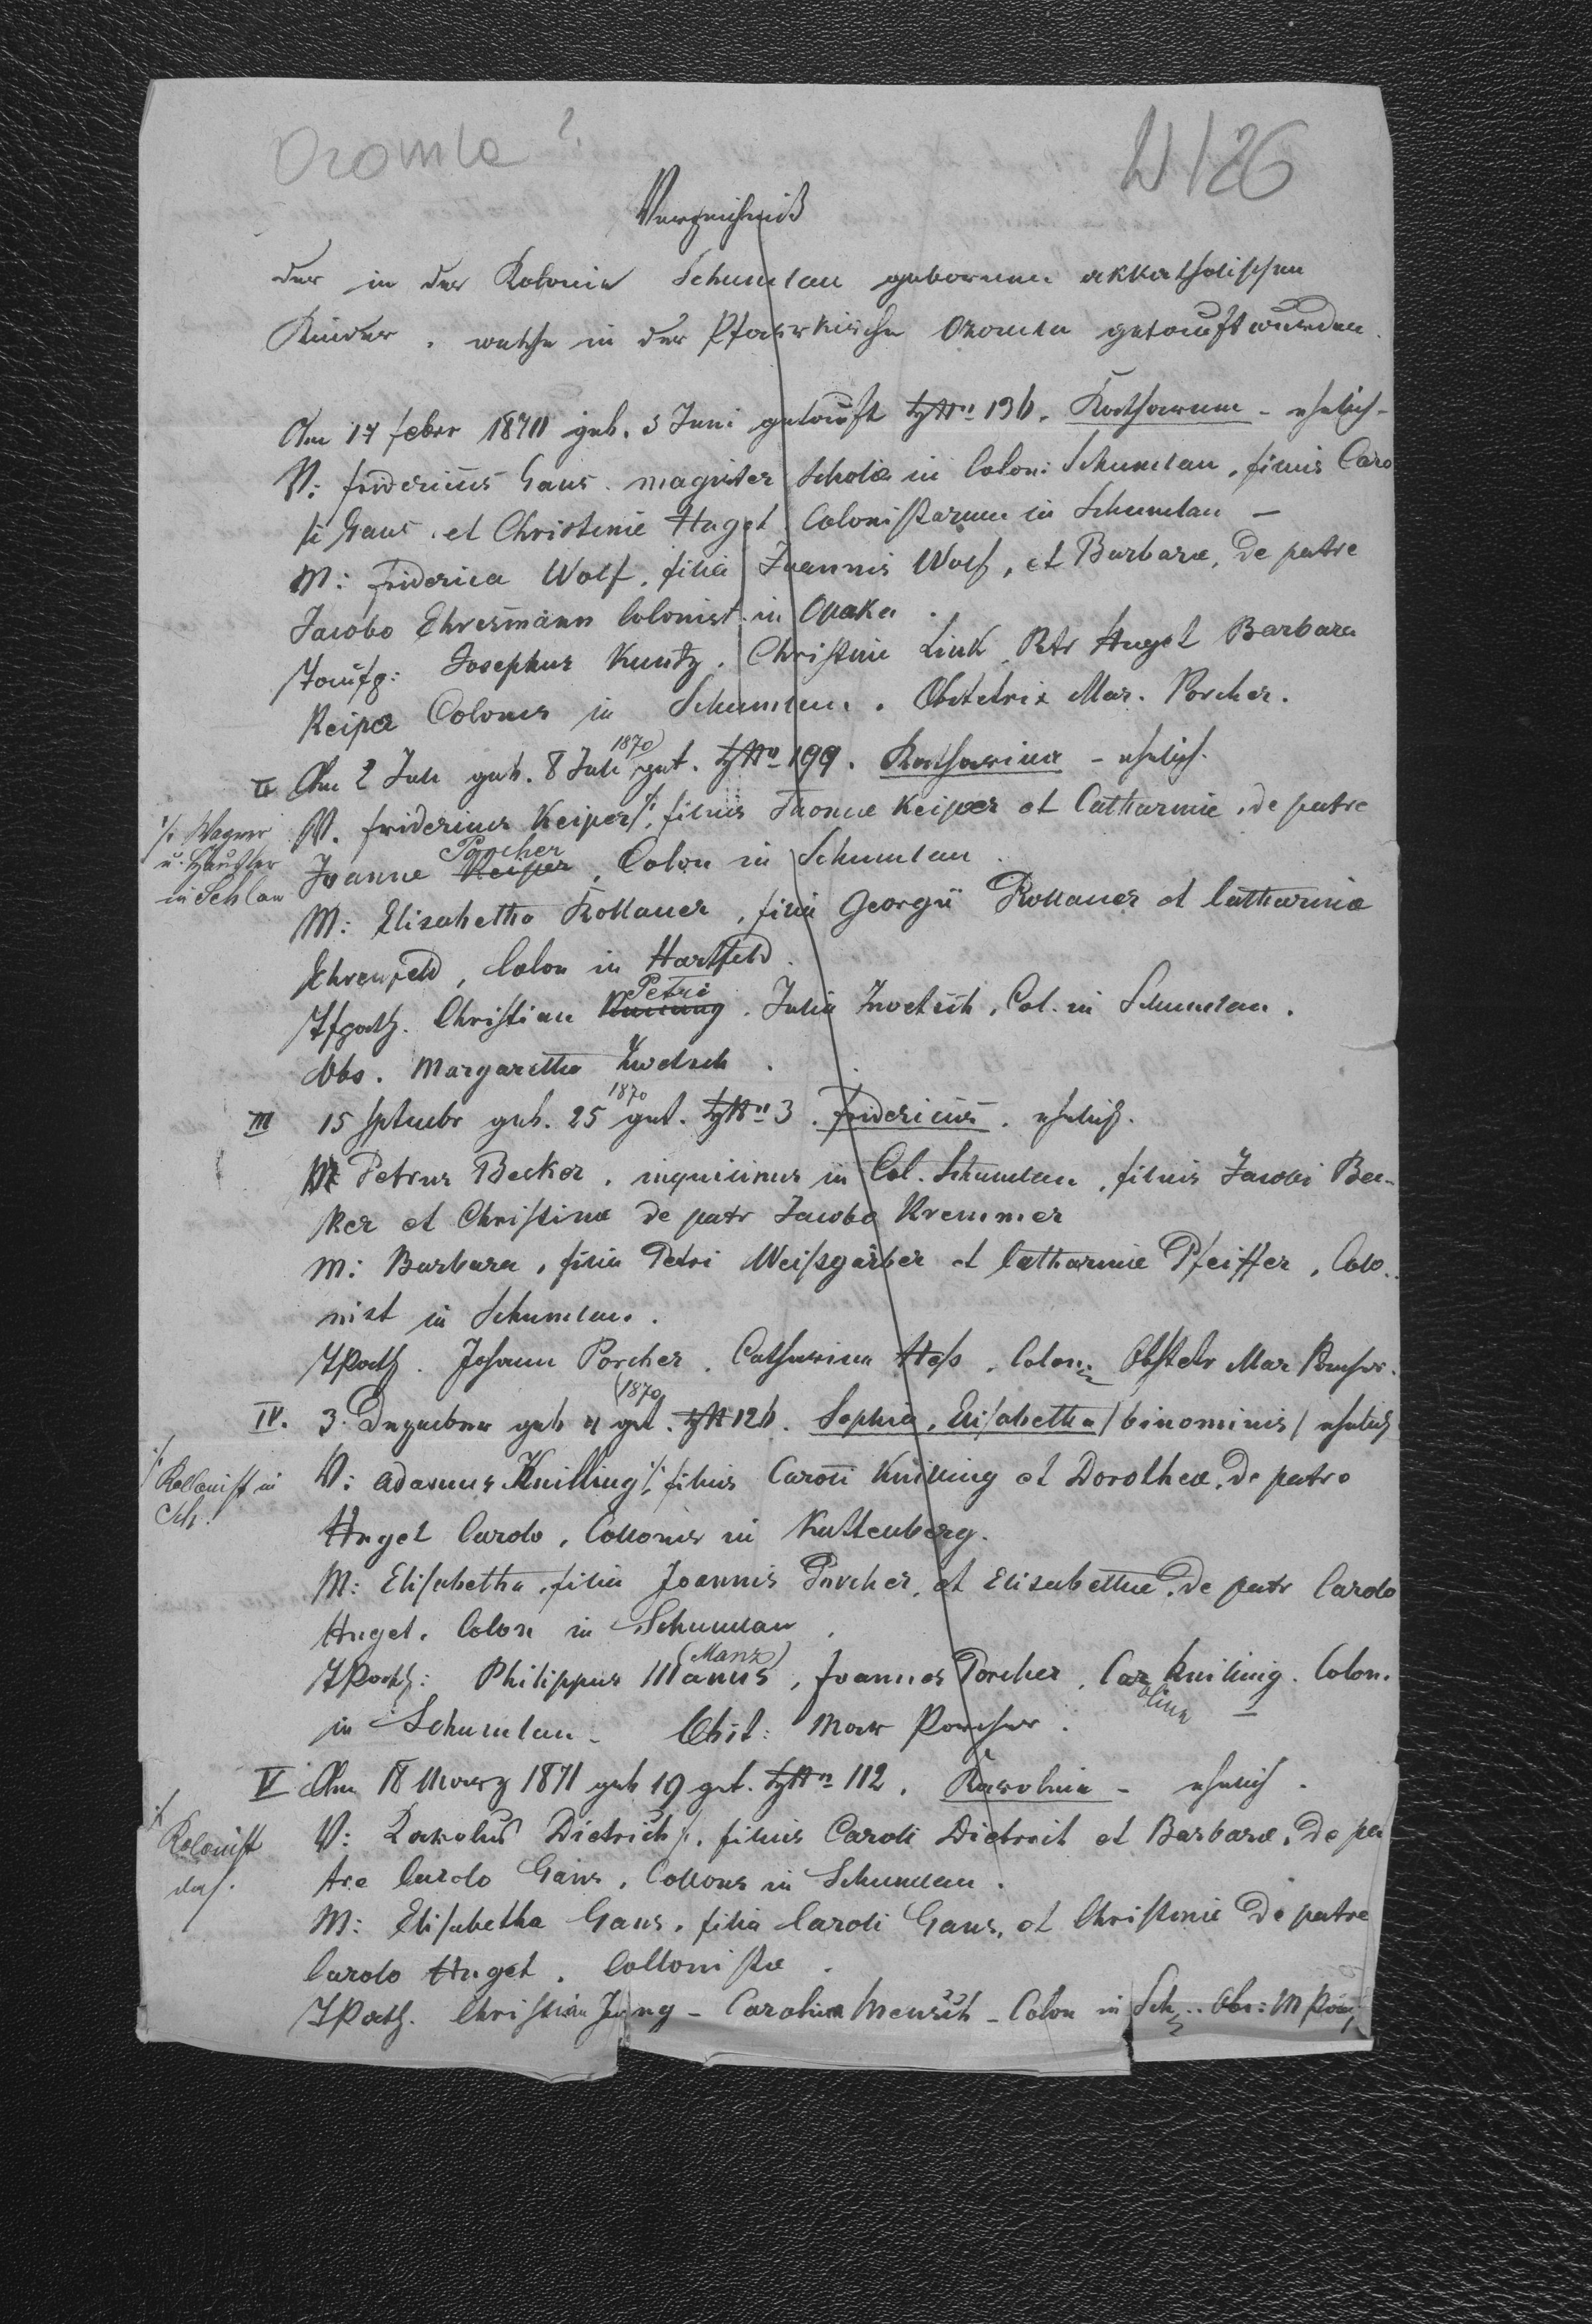 Ozomla ?
W/26
Verzeichniß
der in der Kolonie Schumlau geborenen akkatholischen
Kinder, welche in der Pfarrkirche Ozomla getauft wurden.
Am 17 febr geb. 3 Juni getauft 136. Katharina - ehelich -
V: fridericus Gaus. magister schola in Coloni Schumlau, filius Caro
li Gaus. et Christinie Huget Colonistarum in Schumlau -
M: friderica Wolf, filia Joannis Wolf, et Barbara, de patre
Jacobo Ehresmann Colonist. in
Josephus Kuntz. Christine Link Ptr Huget Barbara
Keiper Colonis in Schumlau. Obstetrix Mar. Porcher.
II Am 2 Juli geb. 8 Juli (1870) get. 199. Katharina - ehelich.
V. fridericus Keiper /: filius Thomae Keiper et Catharinie, de patre
/: Wagner
u. Häusler
in Schlau
Joanne Keiper Porcher, Colon in Schumlau.
M: Elisabetha Kollauer, filia Georgii Kollauer et Catharina
Ehrenfeld, Colon in Hartfeld.
Christian Petri. Julia Zwetsch, Col. in Schumlau.
Obs. Margaretha Zwetsch.
III 15 Septembr geb. 25 1870 get. 3. fridericus. ehelich.
Petrus Becker, inquilinus in Col. Schumlau, filius Jacobi Bec-
ker et Christina de patr Jacobo Kremmer
M: Barbara, filia Petri Weißgärber et Catharinie Pfeiffer, Colo-
nist in Schumlau.
TPath. Johann Porcher. Catharina Heß, Colon. Obstetr Mar Porcher.
IV. 3. Dezember geb 4 (1870) get. 126. Sophia, Elisabetha /binominis/ ehelich
V: Adamus Knilling /: filius Caroli Knilling et Dorothea, de patre
/: Kolonist in
Sch.
Huget Carolo, Collonis in Kuttenberg.
M: Elisabetha, filia Joannis Porcher, et Elisabethae, de patr Carolo
Huget, Colon in Schumlau.
TPath: Philippus Manus (Manz), Joannes Porcher, Carolina Knilling. Colon.
in Schumlau. Obst: Mar Porcher.
V Am 18 März 1871 geb 19 get. 112. Karolina - ehelich.
V: Karolus Dietrich /:, filius Caroli Dietrich et Barbara, de pa
/: Kolonist
das.
tre Carolo Gaus, Collons in Schumlau.
M: Elisabetha Gaus, filia Caroli Gaus, et Christinie de patre
Carolo Huget, Collonista.
TPath. Christian Jung - Carolina Mensch - Colon in Sch. Obs: M